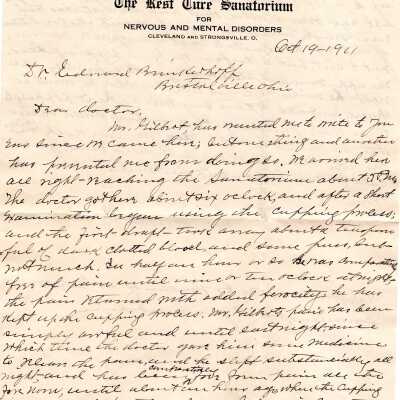 The Rest Cure Sanatorium
FOR
NERVOUS AND MENTAL DISORDERS
CLEVELAND AND STRONGSVILLE, O.
Oct 19-1911
Dr Edmund Brinkerhoff
Ohio
Dear doctor,
Mr. Gilbert has wanted me to write to you
ever since we came here; but one thing and another
has prevented me from doing so, we arrived here
all right reaching the Sanatorium about 5 P.M.
The doctor got here about six oclock, and after a short
examination began using the cupping process;
and the first draft took away about a teaspoon
ful of dark clotted blood and some puss, but
not much. In half an hour or so he was comparatively
free of pain until nine or ten oclock at night
the pain returned with added ferocity he has
kept up the cupping process. Mr. Gilberts pain has been
simply awful and until last night since
which time the doctor gave him some medicine
to the pain, and he slept all
night, and has been constantly free from pain all the
fore noon, until about an hour ago when the cupping